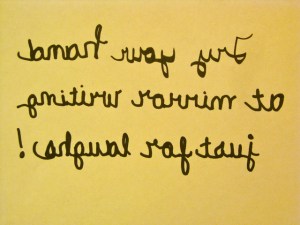 Try your hand
at mirror writing
just for laughs!